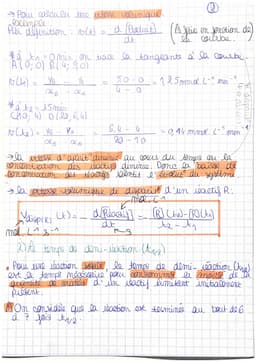 ②
→ Pour calculer une vitesse volumique
Exemple:
Par définition: v(t) = d[Produit] / dt
(À faire en fonction de la courbe.)
à t₀ = 0 min on trace la tangente à la courbe.
A(0;0) B(4;50)
v(t₀) = yB - yA / xB - xA = 50 - 0 / 4 - 0 = 12,5 mmol.L⁻¹.min⁻¹
à t₂ = 15 min
v(t₂) = yD - yC / xD - xC = 0,4 mmol.L⁻¹.min⁻¹
→ la vitesse d'appar diminue au cours du temps où la concentration des réactifs diminue. Donc la baisse de concentration des réactifs ralentit l'évolut° du système
→ la vitesse volumique de disparit° d'un réactif R:
mol.L⁻¹
Vdisp(R) (t) = - d[Réactif] / dt = - [R](t₂) - [R](t₁) / t₂ - t₁
mol.L⁻¹.s⁻¹
2) Le temps de demi-réaction (t₁/₂)
Pour une réaction totale, le temps de demi-réaction (t₁/₂) est le temps nécessaire pour consommer la moitié de la quantité de matière d'un réactif limitant initialement présent.
On considère que la réaction est terminée au bout de 6 à 7 fois t₁/₂.